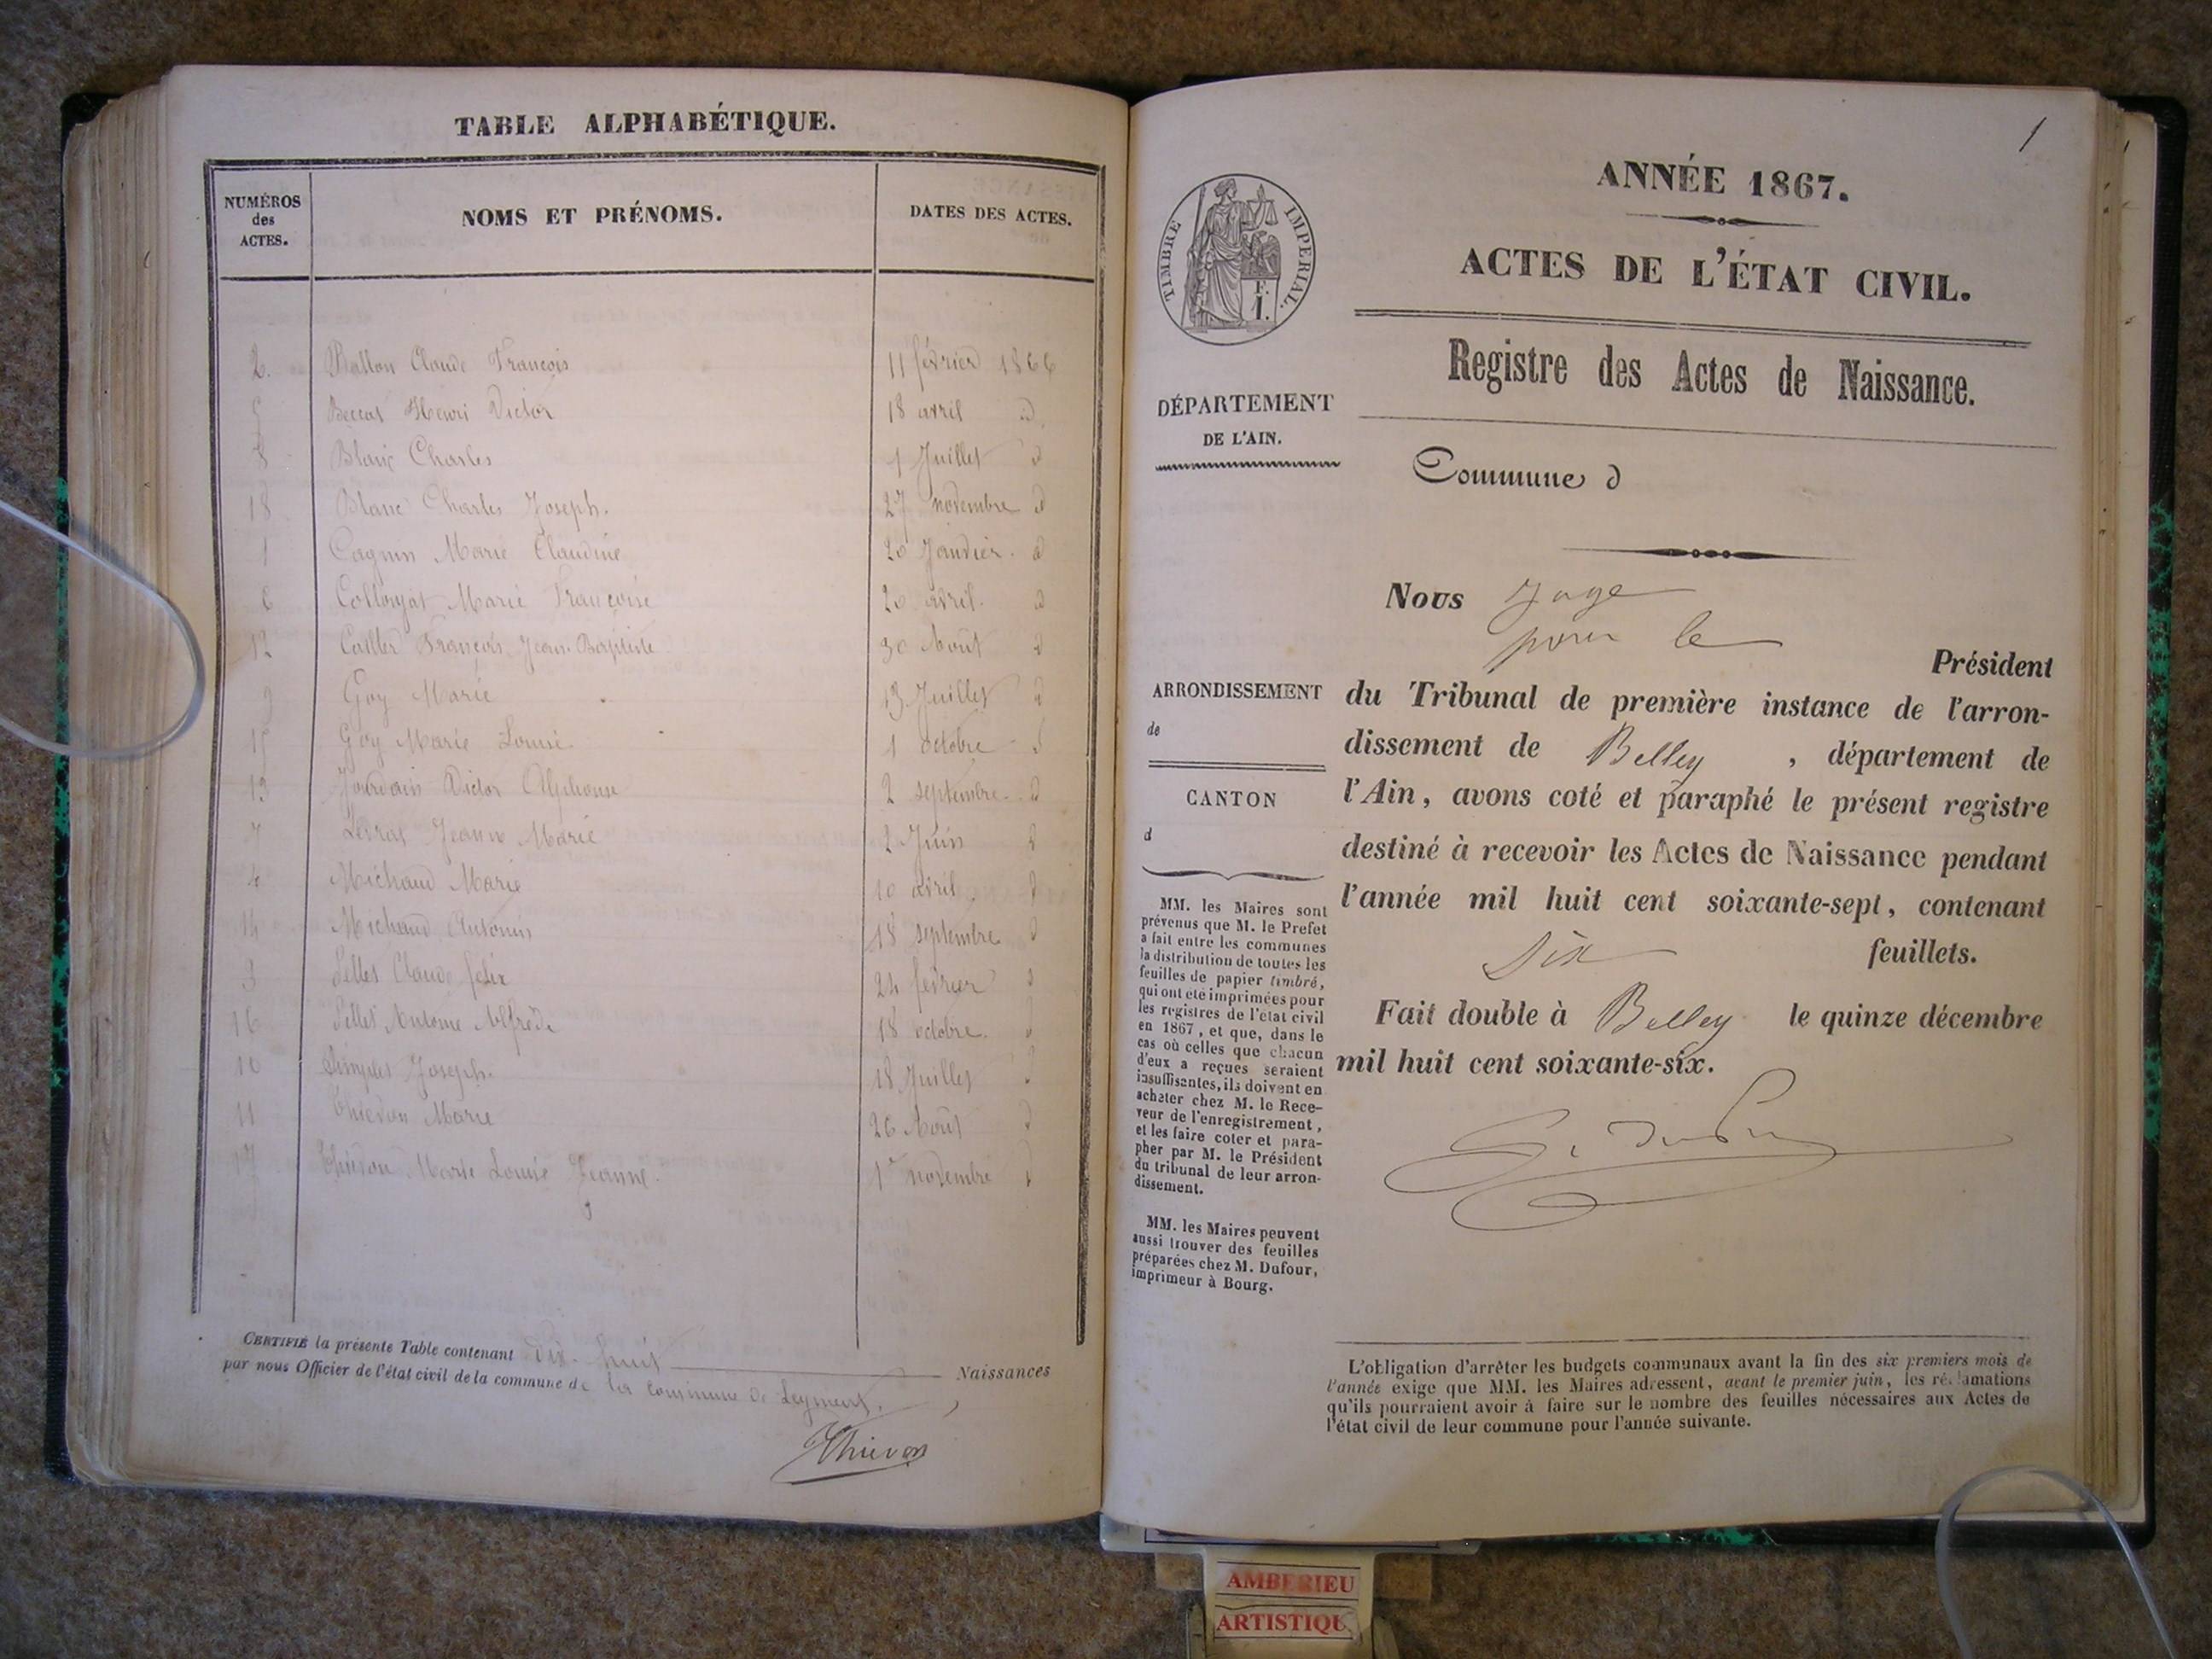 TABLE ALPHABÉTIQUE.
NUMÉROS
des
ACTES.
NOMS ET PRÉNOMS.
DATES DES ACTES.
2. Ballon Claude François 11 février 1866
5 Beccat Henri Victor 18 avril d
8 Blanc Charles 1 Juillet d
18 Blanc Charles Joseph. 27 novembre d
1 Cagnin Marie Claudine 20 Janvier. d
6 Marie Françoise 20 avril. d
12 François Jean-Baptiste 30 Août d
9 Goy Marie 13 Juillet d
15 Goy Marie Louise 1 octobre d
13 Jourdain Victor Alphonse 2 septembre. d
7 Jeanne Marie 2 Juin d
4 Michaud Marie 10 avril d
14 Michaud Antonin 18 septembre d
3 Pellet Claude félix 24 février d
16 Pellet Antoine Alfred 18 octobre. d
10 Simplet Joseph. 18 Juillet
11 Thievon Marie 26 Août d
17 Thievon Marie Louise Jeanne. 1er novembre d
CERTIFIÉ la présente Table contenant dix-huit Naissances
par nous Officier de l'état civil de la commune de la commune de Leyment.
Thievon
1
TIMBRE IMPERIAL.
F.
1.
ANNÉE 1867.
ACTES DE L'ÉTAT CIVIL.
Registre des Actes de Naissance.
DÉPARTEMENT
DE L'AIN.
Commune d
Nous Juge
pour le
Président
ARRONDISSEMENT
de
CANTON
d
du Tribunal de première instance de l'arron-
dissement de Belley , département de
l'Ain, avons coté et paraphé le présent registre
destiné à recevoir les Actes de Naissance pendant
l'année mil huit cent soixante-sept, contenant
six feuillets.
Fait double à Belley le quinze décembre
mil huit cent soixante-six.
MM. les Maires sont
prévenus que M. le Prefet
a fait entre les communes
la distribution de toutes les
feuilles de papier timbré,
qui ont été imprimées pour
les registres de l'état civil
en 1867, et que, dans le
cas où celles que chacun
d'eux a reçues seraient
insuffisantes, ils doivent en
acheter chez M. le Rece-
veur de l'enregistrement,
et les faire coter et para-
pher par M. le Président
du tribunal de leur arron-
dissement.
MM. les Maires peuvent
aussi trouver des feuilles
préparées chez M. Dufour,
imprimeur à Bourg.
L'obligation d'arrêter les budgets communaux avant la fin des six premiers mois de
l'année exige que MM. les Maires adressent, avant le premier juin, les réclamations
qu'ils pourraient avoir à faire sur le nombre des feuilles nécessaires aux Actes de
l'état civil de leur commune pour l'année suivante.
AMBERIEU
ARTISTIQUE